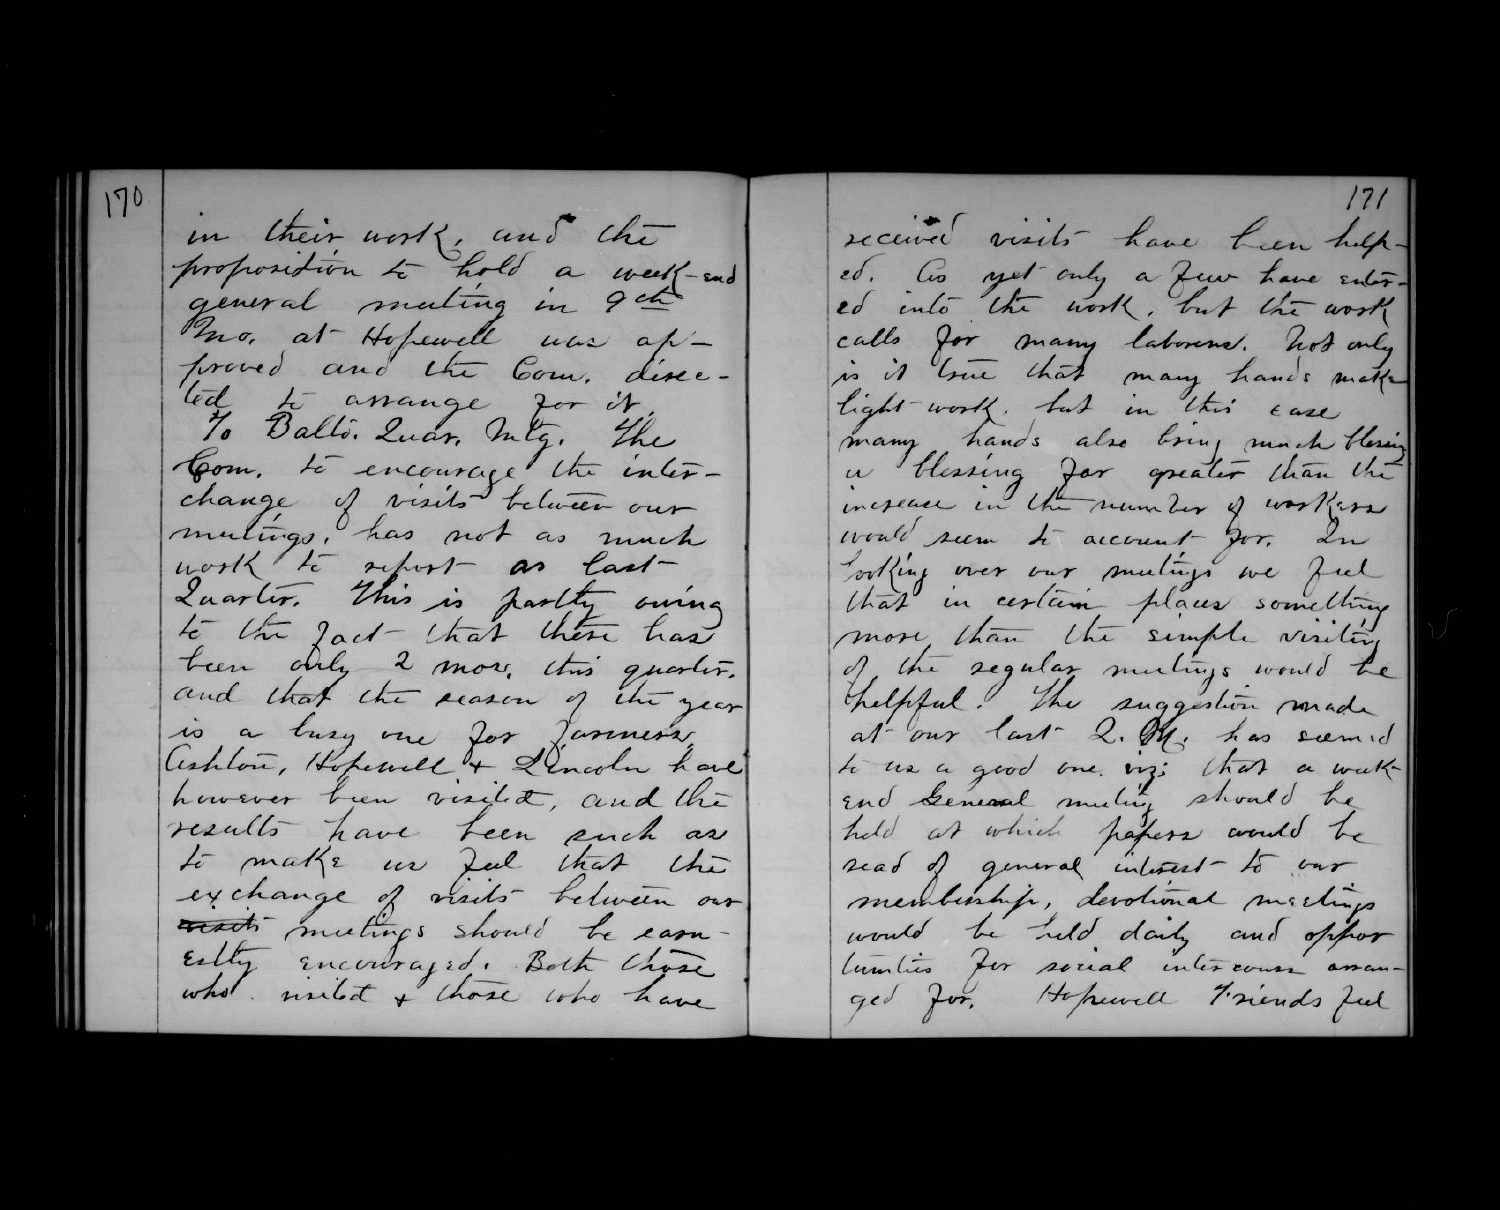 170
in their work, and the
proposition to hold a week-end
general meeting in 9th
Mo. at Hopewell was ap-
proved and the Com. direc-
ted to arrange for it.
To Balto. Quar. Mtg. The
Com. to encourage the inter-
change of visits between our
meetings, has not as much
work to report as last
Quarter. This is partly owing
to the fact that there has
been only 2 mos. this quarter,
and that the season of the year
is a busy one for farmers.
Ashton, Hopewell + Lincoln have
however been visited, and the
results have been such as
to make us feel that the
exchange of visits between our
visits meetings should be earn-
estly encouraged. Both those
who visited + those who have
171
received visits have been help-
ed. As yet only a few have enter-
ed into the work, but the work
calls for many laborers. Not only
is it true that many hands make
light work, but in this case
many hands also bring much blessing
a blessing far greater than the
increase in the number of workers
would seem to account for. In
looking over our meetings we feel
that in certain places something
more than the simple visiting
of the regular meetings would be
helpful. The suggestion made
at our last Q. M. has seemed
to us a good one. viz; that a week-
end General meeting should be
held at which papers would be
read of general interest to our
membership, devotional meetings
would be held daily and oppor
tunities for social intercourse arran-
ged for. Hopewell Friends feel